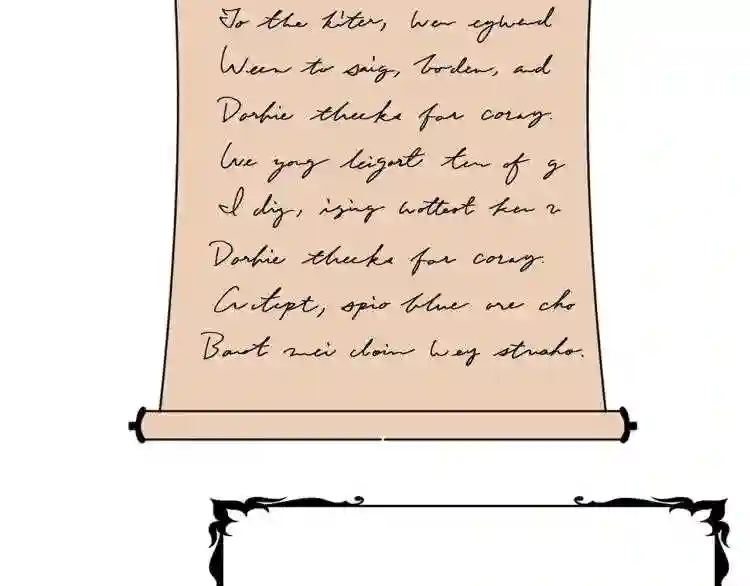 To the kiter, wer egwend
Ween to saig, boden, and
Dorhie theeks for coray.
We yong leigort ten of g
I dig, ising wottest ken
Dorhie theeks for coray.
spio blue ore cho
Bauot mei cloin wey struaho.